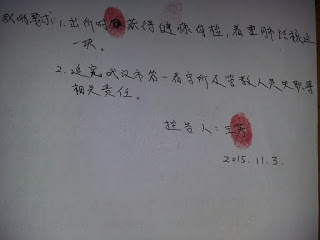 我的要求：1. 出所时获得健康体检，着重肺结核这
一块。
2. 追究武汉市第一看守所及管教人员失职等
相关责任。
控告人：王芳
2015.11.3.